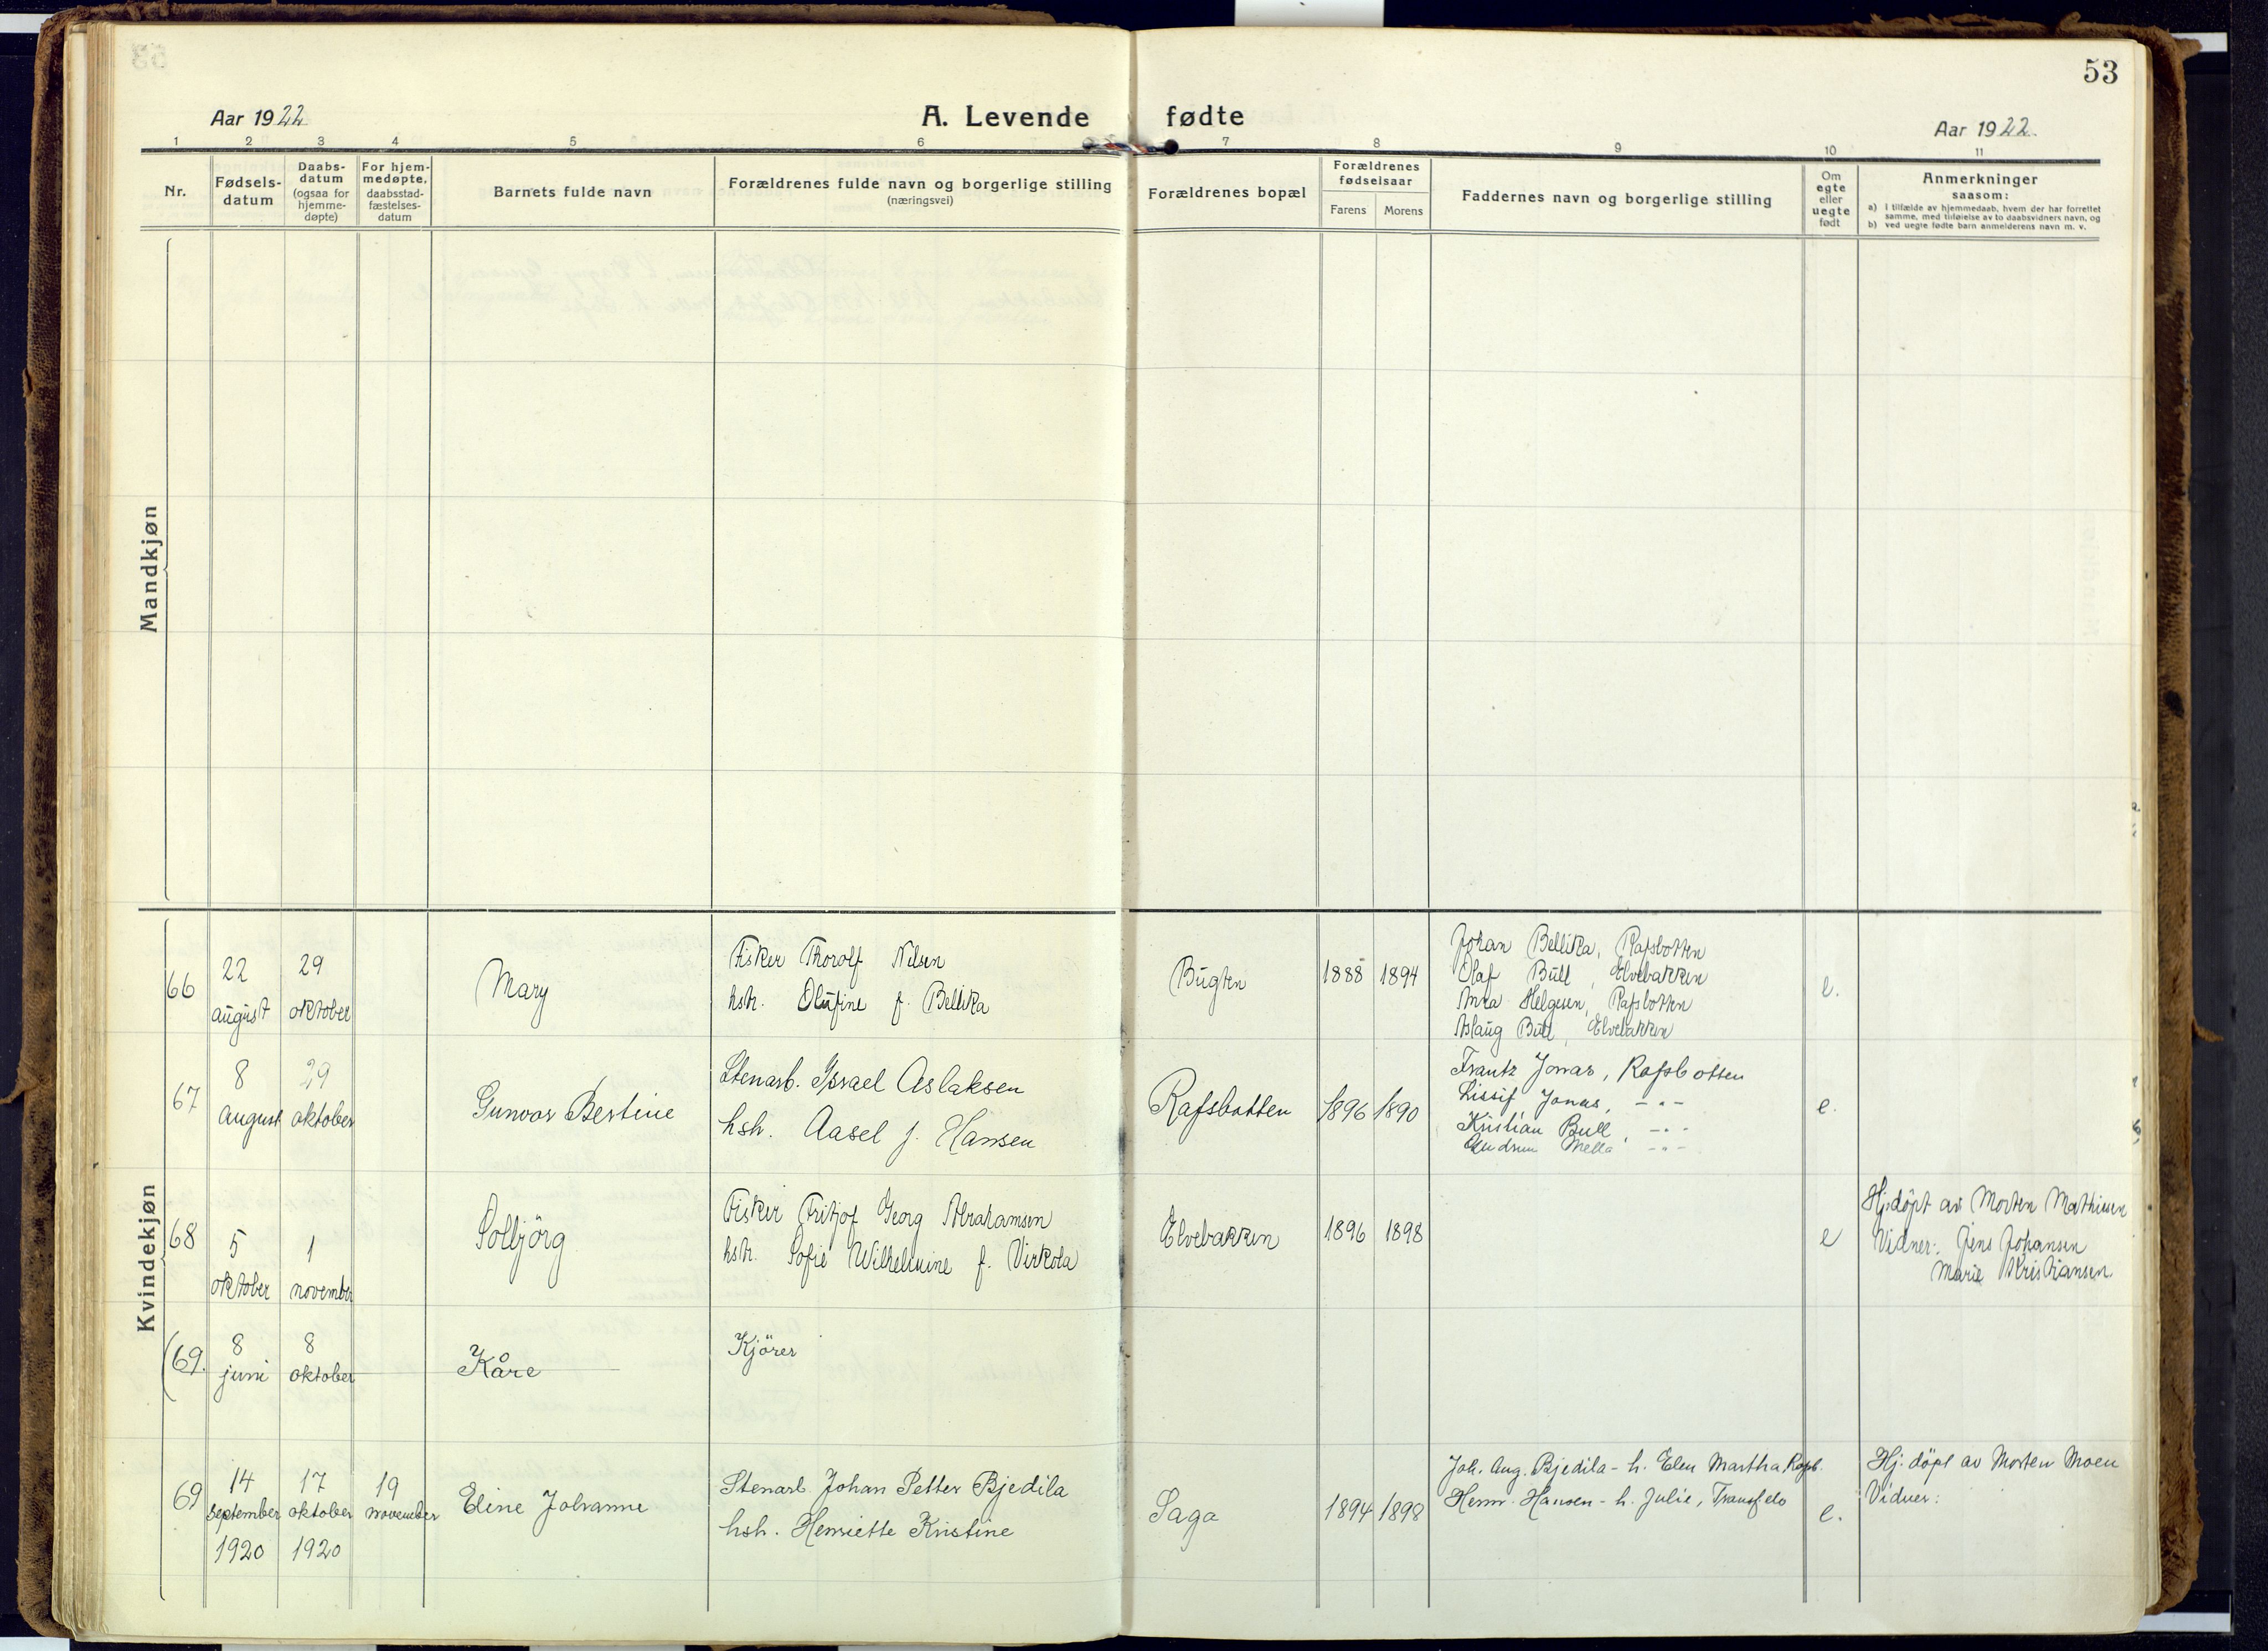 53
Aar 1922
A. Levende fødte
Aar 1922.
1 2 3 4 5 6 7 8 9 10 11
Nr.
Fødsels-
datum
Daabs-
datum
(ogsaa for
hjemme-
døpte)
For hjem-
medøpte,
daabsstad-
fæstelses-
datum
Barnets fulde navn
Forældrenes fulde navn og borgerlige stilling
(næringsvei)
Forældrenes bopæl
Forældrenes
fødselsaar
Farens Morens
Faddernes navn og borgerlige stilling
Om
egte
eller
uegte
født
Anmerkninger
saasom:
a) i tilfælde av hjemmedaab, hvem der har forrettet
samme, med tilføielse av to daabsvidners navn, og
b) ved uegte fødte barn anmelderens navn m. v.
Mandkjøn
Kvindekjøn
66
22
august
29
oktober
Mary
Fisker Thorolf Nilsen
hstr. Olufine f. Bellika
Bugten
1888 1894
Johan Bellika, Rafsbotten
Olaf Bull, Elvebakken
Anna Helgesen, Rafsbotten
Aslaug Bull, Elvebakken
e.
67
8
august
29
oktober
Gunvor Bertine
Stenarb. Israel Aslaksen
hsh. Aasel f. Hansen
Rafsbotten
1896 1890
Frantz Jonas, Rafsbotten
Lissif Jonas, -"-
Kristian Bull, -"-
Gudrun Mella -"-
e.
68
5
oktober
1
november
Solbjörg
Fisker Fritjof Georg Abrahamsen
hstr. Sofie Wilhelmine f. Virkola
Elvebakken
1896 1898
e
Hj.döpt av Morten Mathisen
Vidner: Jens Johansen
Marie Kristiansen
(69.
8
juni
8
oktober
Kåre
Kjörer
69
14
september
1920
17
oktober
1920
19
november
Eline Johanne
Stenarb. Johan Petter Bjedila
hsh. Henriette Kristine
Saga
1894 1898
Joh. Aug. Bjedila - h. Elen Martha Rafsb.
Henr. Hansen - h. Julie, Transfelo
e.
Hj. döpt av Morten Moen
Vidner: